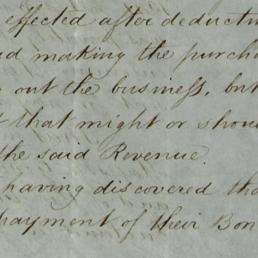 effected after deductin
d making the purcha
out the business, but
that might or shou
the said Revenue.
having discovered tha
payment of their Bon